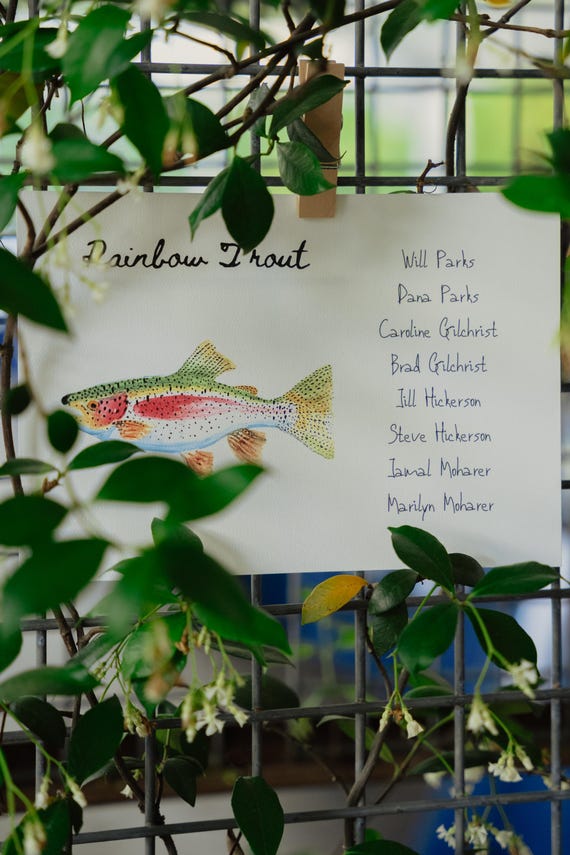 Rainbow Trout
Will Parks
Dana Parks
Caroline Gilchrist
Brad Gilchrist
Jill Hickerson
Steve Hickerson
Jamal Moharer
Marilyn Moharer